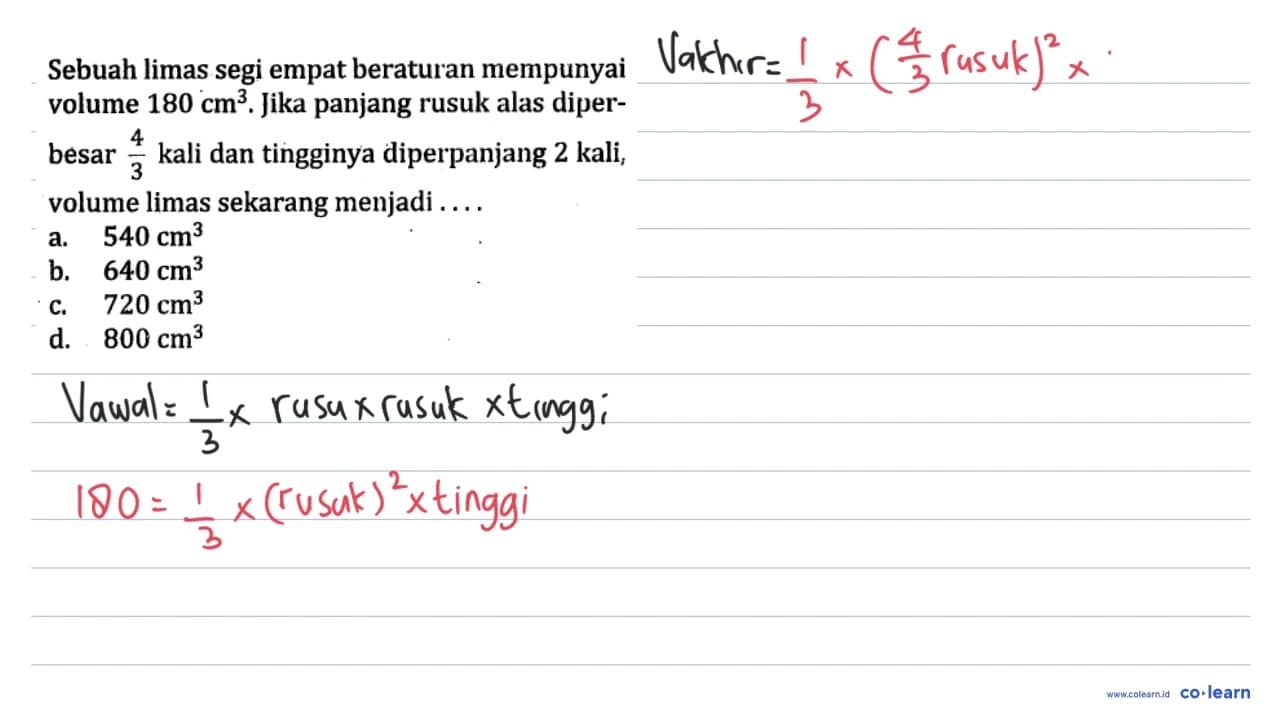 Sebuah limas segi empat beraturan mempunyai
volume 180 cm³. Jika panjang rusuk alas diper-
besar 4/3 kali dan tingginya diperpanjang 2 kali,
volume limas sekarang menjadi . . . .
a. 540 cm³
b. 640 cm³
c. 720 cm³
d. 800 cm³
Vawal = 1/3 x rusu x rusuk x tinggi
180 = 1/3 x (rusuk)² x tinggi
Vakhir = 1/3 x (4/3 rusuk)² x
www.colearn.id co·learn